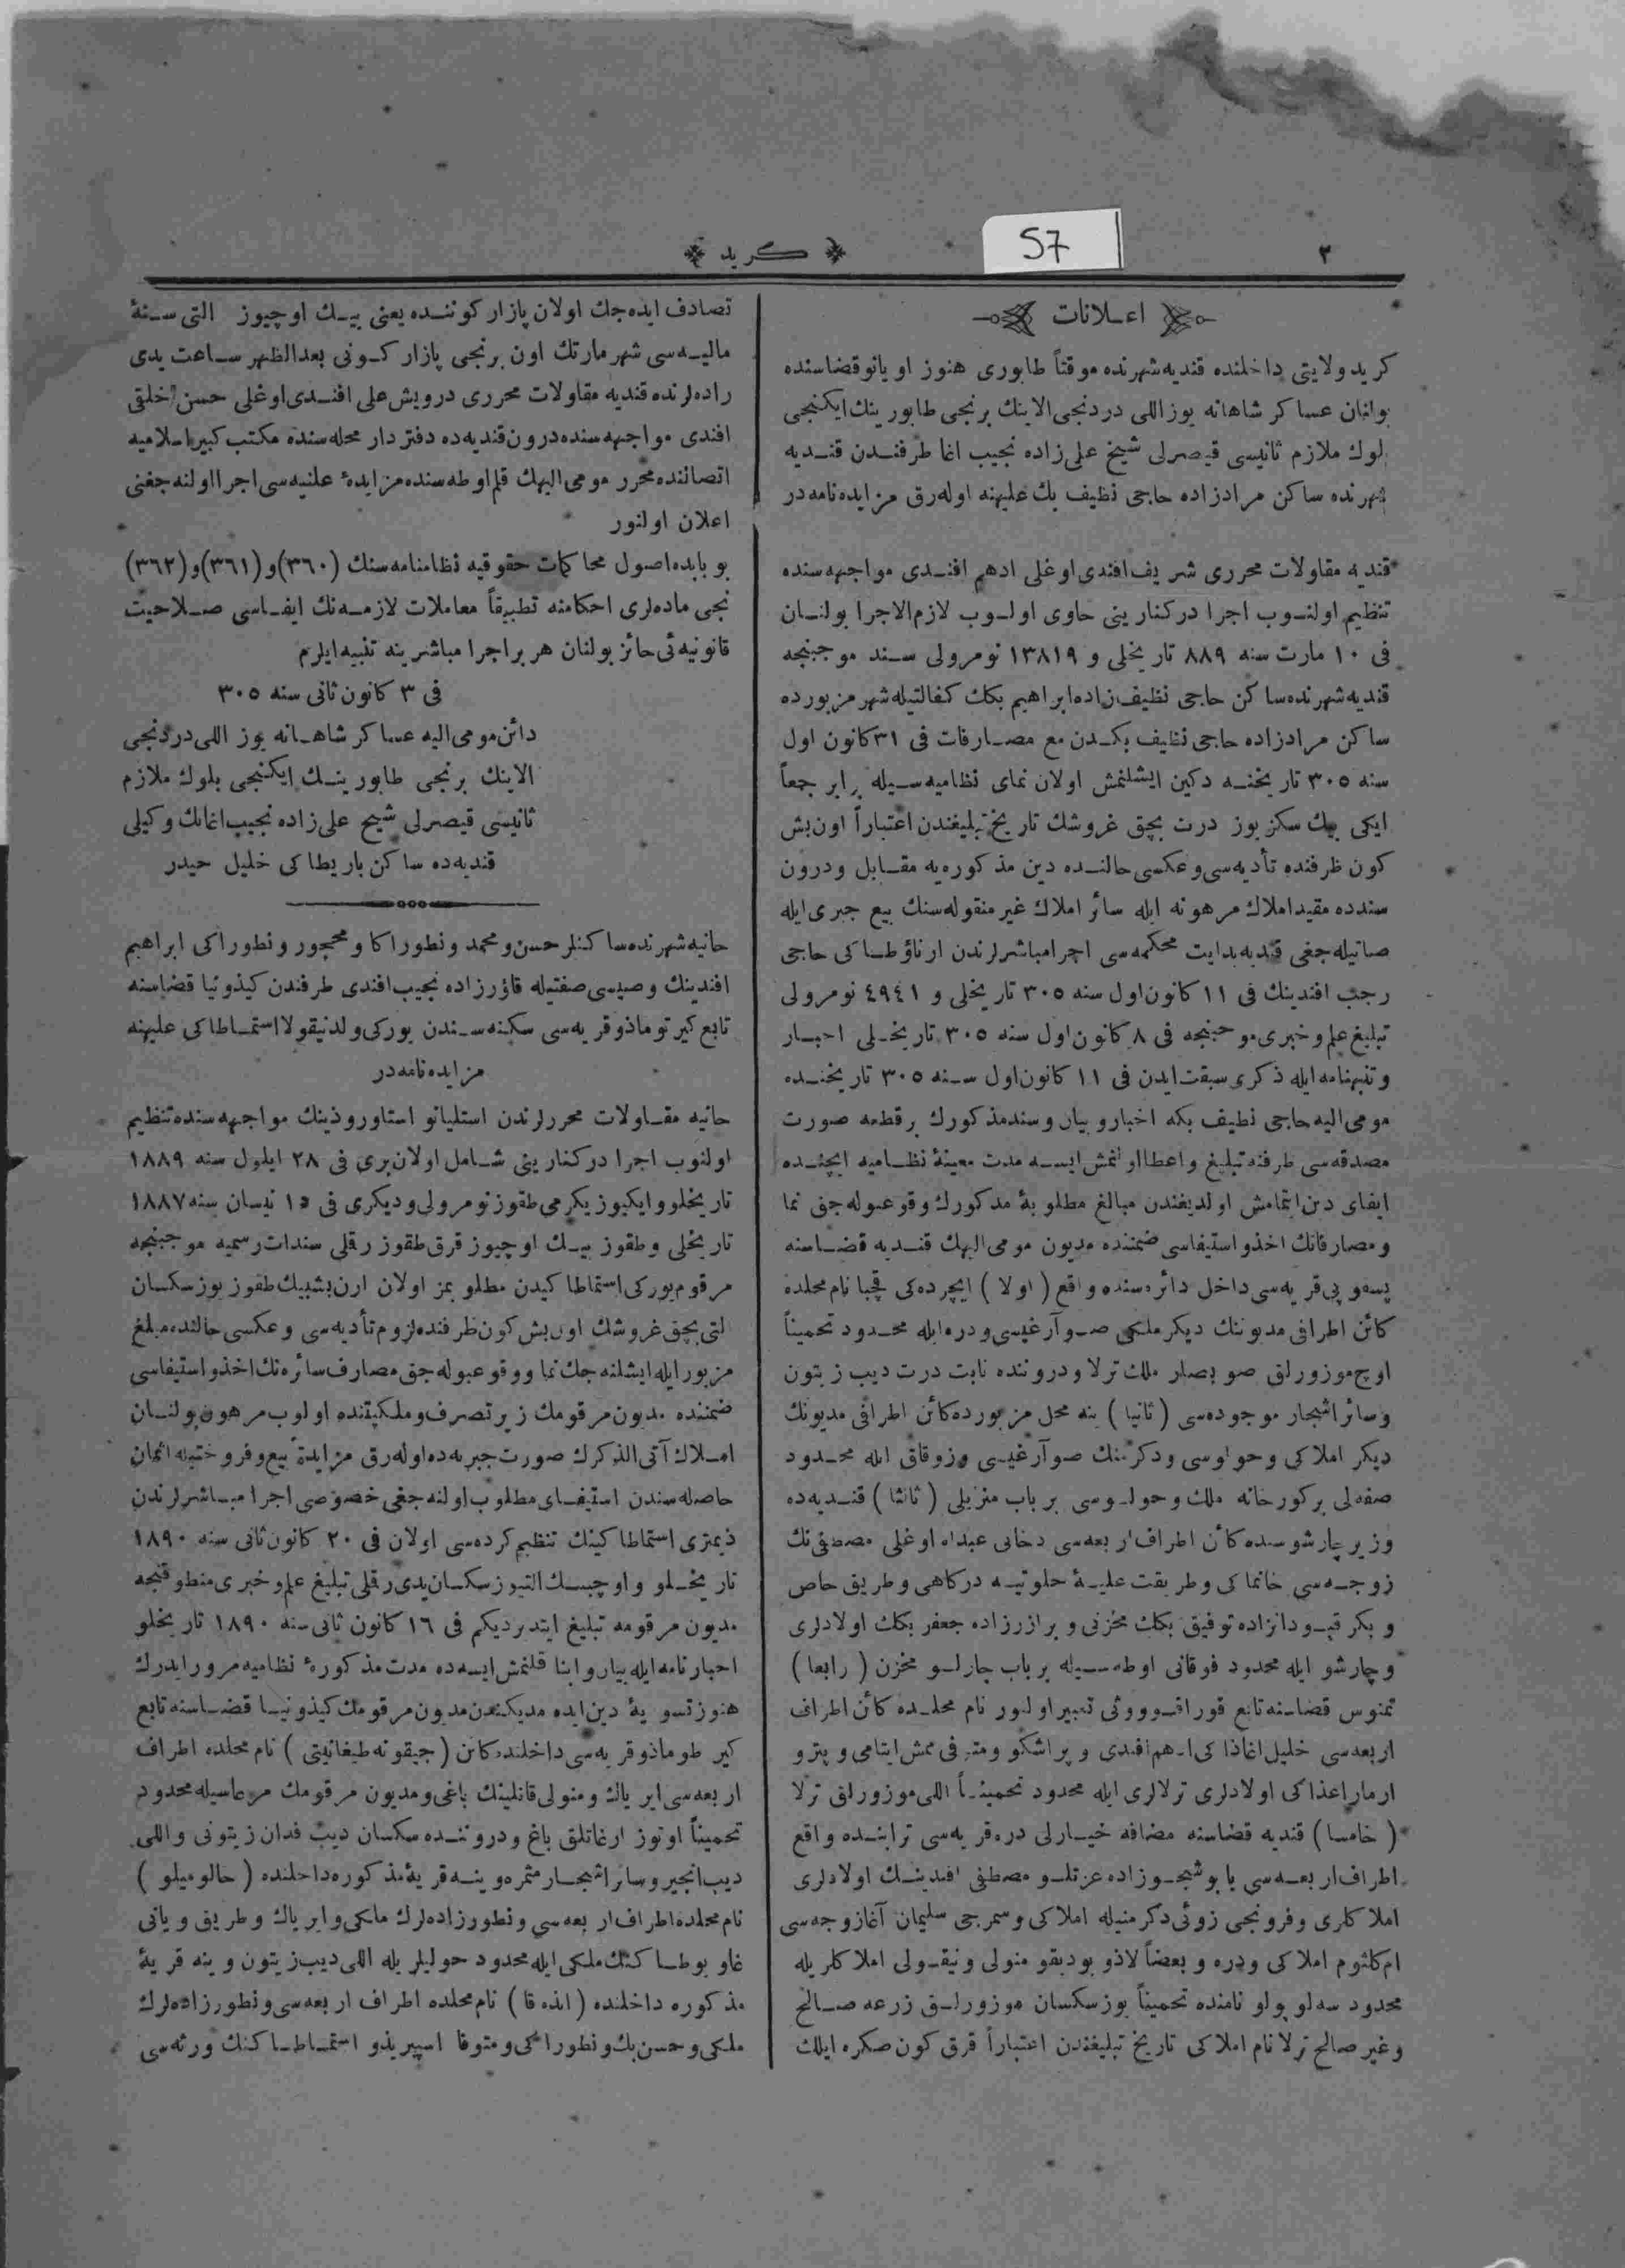 ٢
57
﴿ كريد ﴾
اعلانات
كريد ولايتی داخلنده قنديه شهرنده موقتاً طابوری هنوز اويانو قضاسنده
بولنان عساكر شاهانه يوز اللی دردنجی الاينك برنجی طابورينك ايكنجی
بلوك ملازم ثانيسی قيصرلی شيخ علی زاده نجيب اغا طرفندن قنديه
شهرنده ساكن مرادزاده حاجی نظيف بك عليهنه اوله رق مزايده نامه در
قنديه مقاولات محرری شريف افندی اوغلی ادهم افندی مواجهه سنده
تنظيم اولنوب اجرا دركنارينی حاوی اولوب لازم الاجرا بولنان
فی ١٠ مارت سنه ٨٨٩ تاريخلی و ١٣٨١٩ نومرولی سند موجبنجه
قنديه شهرنده ساكن حاجی نظيف زاده ابراهيم بكك كفالتيله شهر مزبورده
ساكن مرادزاده حاجی نظيف بكدن مع مصارفات فی ٣١ كانون اول
سنه ٣٠٥ تاريخنه دكين ايشلنمش اولان نمای نظاميه سيله برابر جمعاً
ايكی بيك سكز يوز درت بچق غروشك تاريخ تبليغندن اعتباراً اون بش
كون ظرفنده تأديه سی وعكسی حالنده دين مذكوره يه مقابل ودرون
سندده مقيد املاك مرهونه ايله سائر املاك غير منقوله سنك بيع جبری ايله
صاتيله جغی قنديه بدايت محكمه سی اجرا مباشرلرندن ارناؤطاكی حاجی
رجب افندينك فی ١١ كانون اول سنه ٣٠٥ تاريخلی و ٤٩٤١ نومرولی
تبليغ علم وخبری موجبنجه فی ٨ كانون اول سنه ٣٠٥ تاريخلی اخبار
وتنبهنامه ايله ذكری سبقت ايدن فی ١١ كانون اول سنه ٣٠٥ تاريخنده
مومی اليه حاجی نظيف بكه اخبار و بيان وسند مذكورك بر قطعه صورت
مصدقه سی طرفنه تبليغ واعطا اولنمش ايسه مدت معينهٔ نظاميه ايچنده
ايفای دين ايتمامش اولديغندن مبالغ مطلوبهٔ مذكورك وقوعبوله جق نما
ومصارفاتك اخذ واستيفاسی ضمننده مديون مومی اليهك قنديه قضاسنه
قريه سی داخل دائره سنده واقع ( اولا ) ايچرده كی نام محلده
كائن اطرافی مديونك ديكر ملكی صو آرغيسی ودره ايله محدود تخميناً
اوچ موزورلق صو بصار ملك ترلا ودروننده نابت درت ديب زيتون
وسائر اشجار موجوده سی ( ثانيا ) ينه محل مزبورده كائن اطرافی مديونك
ديكر املاكی وحولوسی ودكرمنك صو آرغيسی وزوقاق ايله محدود
صفه لی بر كورخانه ملك وحولوسی بر باب منزلی ( ثالثا ) قنديه ده
وزير چارشوسنده كائن اطراف اربعه سی دخانی عبدالله اوغلی مصطفی نك
زوجه سی خانماكی وطريقت عليهٔ خلوتيه دركاهی وطريق خاص
و بكر قپودانزاده توفيق بكك مخزنی و برازرزاده جعفر بكك اولادلری
وچارشو ايله محدود فوقانی اوطه سيله بر باب چارلو مخزن ( رابعا )
تمنوس قضاسنه تابع تعبير اولنور نام محلده كائن اطراف
اربعه سی خليل اغاذاكی ادهم افندی و
اولادلری ترلالری ايله محدود تخميناً اللی موزورلق ترلا
( خامسا ) قنديه قضاسنه مضافه خيارلی دره قريه سی ترابنده واقع
اطراف اربعه سی يابوشجوزاده عزتلو مصطفی افندينك اولادلری
املاكلری وفرونجی دكرمنيله املاكی وسمرجی سليمان آغا زوجه سی
ام كلثوم املاكی ودره و بعضاً منولی ونيقولی املاكلريله
محدود نامنده تخميناً يوز سكسان موزورلق زرعه صالح
وغير صالح ترلا نام املاكی تاريخ تبليغندن اعتباراً قرق كون صكره ايلك
تصادف ايده جك اولان پازار كوننده يعنی بيك اوچيوز التی سنهٔ
ماليه سی شهر مارتك اون برنجی پازار كونی بعد الظهر ساعت يدی
راده لرنده قنديه مقاولات محرری درويش علی افندی اوغلی حسن خلقی
افندی مواجهه سنده درون قنديه ده دفتردار محله سنده مكتب كبير اسلاميه
اتصالنده محرر مومی اليهك قلم اوطه سنده مزايدهٔ علنيه سی اجرا اولنه جغی
اعلان اولنور
بو بابده اصول محاكمات حقوقيه نظامنامه سنك (٣٦٠) و (٣٦١) و (٣٦٢)
نجی ماده لری احكامنه تطبيقاً معاملات لازمه نك ايفاسی صلاحيت
قانونيه ئی حائز بولنان هر بر اجرا مباشرينه تنبيه ايلرم
فی ٣ كانون ثانی سنه ٣٠٥
دائن مومی اليه عساكر شاهانه يوز اللی دردنجی
الاينك برنجی طابورينك ايكنجی بلوك ملازم
ثانيسی قيصرلی شيخ علی زاده نجيب اغانك وكيلی
قنديه ده ساكن باريطاكی خليل حيدر
حانيه شهرنده ساكنلر حسن ومحمد ونطوراكا ومحجور ونطوراكی ابراهيم
افندينك وصيسی صفتيله قاؤرزاده نجيب افندی طرفندن كيذونيا قضاسنه
تابع كيرتوماذو قريه سی سكنه سندن يوركی ولد نيقولا استماطاكی عليهنه
مزايده نامه در
حانيه مقاولات محررلرندن استليانو استاوروذينك مواجهه سنده تنظيم
اولنوب اجرا دركنارينی شامل اولان بری فی ٢٨ ايلول سنه ١٨٨٩
تاريخلو وايكيوز يكرمی طقوز نومرولی وديكری فی ١٥ نيسان سنه ١٨٨٧
تاريخلی وطقوز بيك اوچيوز قرق طقوز رقلی سندات رسميه موجبنجه
مرقوم يوركی استماطاكيدن مطلوبمز اولان اون بشبيك طقوز يوز سكسان
التی بچق غروشك اون بش كون ظرفنده لزوم تأديه سی وعكسی حالنده مبلغ
مزبور ايله ايشلنه جك نما ووقوعبوله جق مصارف سائره نك اخذ واستيفاسی
ضمننده مديون مرقومك زير تصرف وملكيتنده اولوب مرهون بولنان
املاك آتی الذكرك صورت جبريه ده اوله رق مزايدة بيع وفروختيله اثمان
حاصله سندن استيفای مطلوب اولنه جغی خصوصی اجرا مباشرلرندن
ذيمتری استماطاكينك تنظيم كرده سی اولان فی ٢٠ كانون ثانی سنه ١٨٩٠
تاريخلو واوچبيك التيوز سكسان يدی رقلی تبليغ علم وخبری منطوقنجه
مديون مرقومه تبليغ ايتدرديكم فی ١٦ كانون ثانی سنه ١٨٩٠ تاريخلو
اخبارنامه ايله بيان وانبا قلنمش ايسه ده مدت مذكورهٔ نظاميه مرور ايدرك
هنوز تسويهٔ دين ايده مديكندن مديون مرقومك كيذونيا قضاسنه تابع
كيرطوماذو قريه سی داخلنده كائن ( جيقونه طيغانيتی ) نام محلده اطراف
اربعه سی ايرياك ومنولی قانلينك باغی ومديون مرقومك مرعاسيله محدود
تخميناً اوتوز ارغاتلق باغ ودروننده سكسان ديب فدان زيتونی واللی
ديب انجير وسائر اشجار مثمره وينه قريهٔ مذكوره داخلنده ( خالوميلو )
نام محلده اطراف اربعه سی ونطورزاده لرك ملكی وايرياك وطريق ويانی
غاوبوطاكينك ملكی ايله محدود حوليلريله اللی ديب زيتون وينه قريهٔ
مذكوره داخلنده نام محلده اطراف اربعه سی ونطورزاده لرك
ملكی وحسن بك ونطوراكی ومتوفا اسپيريذو استماطاكينك ورثه سی